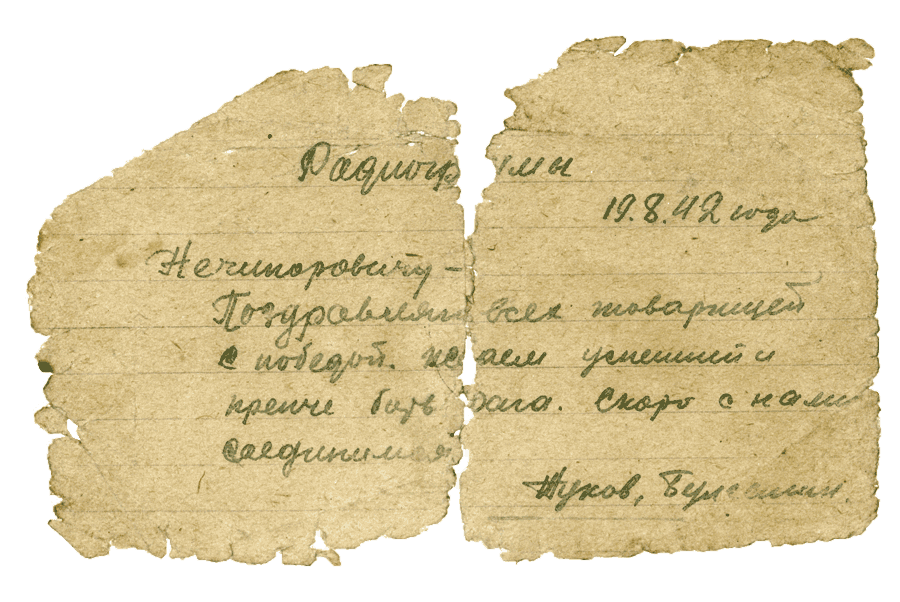 Радиограммы
19.8.42 года
Нечипоровичу –
Поздравляем всех товарищей
с победой. Желаем успешней и
крепче бить врага. Скоро с нами
соединимся
Жуков, Булганин.